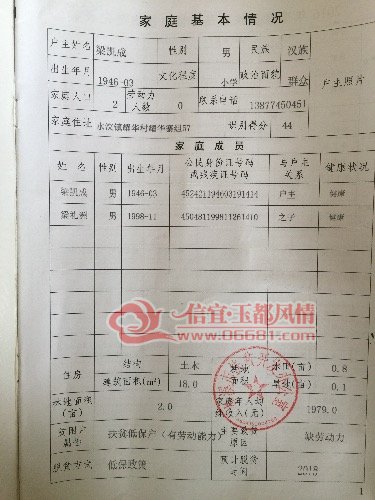 家庭基本情况
户主姓名 梁凯成 性别 男 民族 汉族
出生年月 1946-03 文化程度 小学 政治面貌 群众 户主照片
家庭人口 2 劳动力人数 0 联系电话 13877450451
家庭住址 水汶镇耀华村耀华寨组57 识别得分 44
家庭成员
姓名 性别 出生年月 公民身份证号码或残疾证号码 与户主关系 健康状况
梁凯成 男 1946-03 452421194603191414 户主 健康
梁礼洲 男 1998-11 450481199811261410 之子 健康
信宜·玉都风情
www.06681.com
住房 结构 土木 耕地面积 水田(亩) 0.8
建筑面积(m²) 18.0 旱地(亩) 0.1
林地面积(亩) 2.0 家庭年人均纯收入(元) 1979.0
贫困户属性 扶贫低保户(有劳动能力) 主要致贫原因 缺劳动力
脱贫方式 低保政策 预计脱贫时间 2018
1